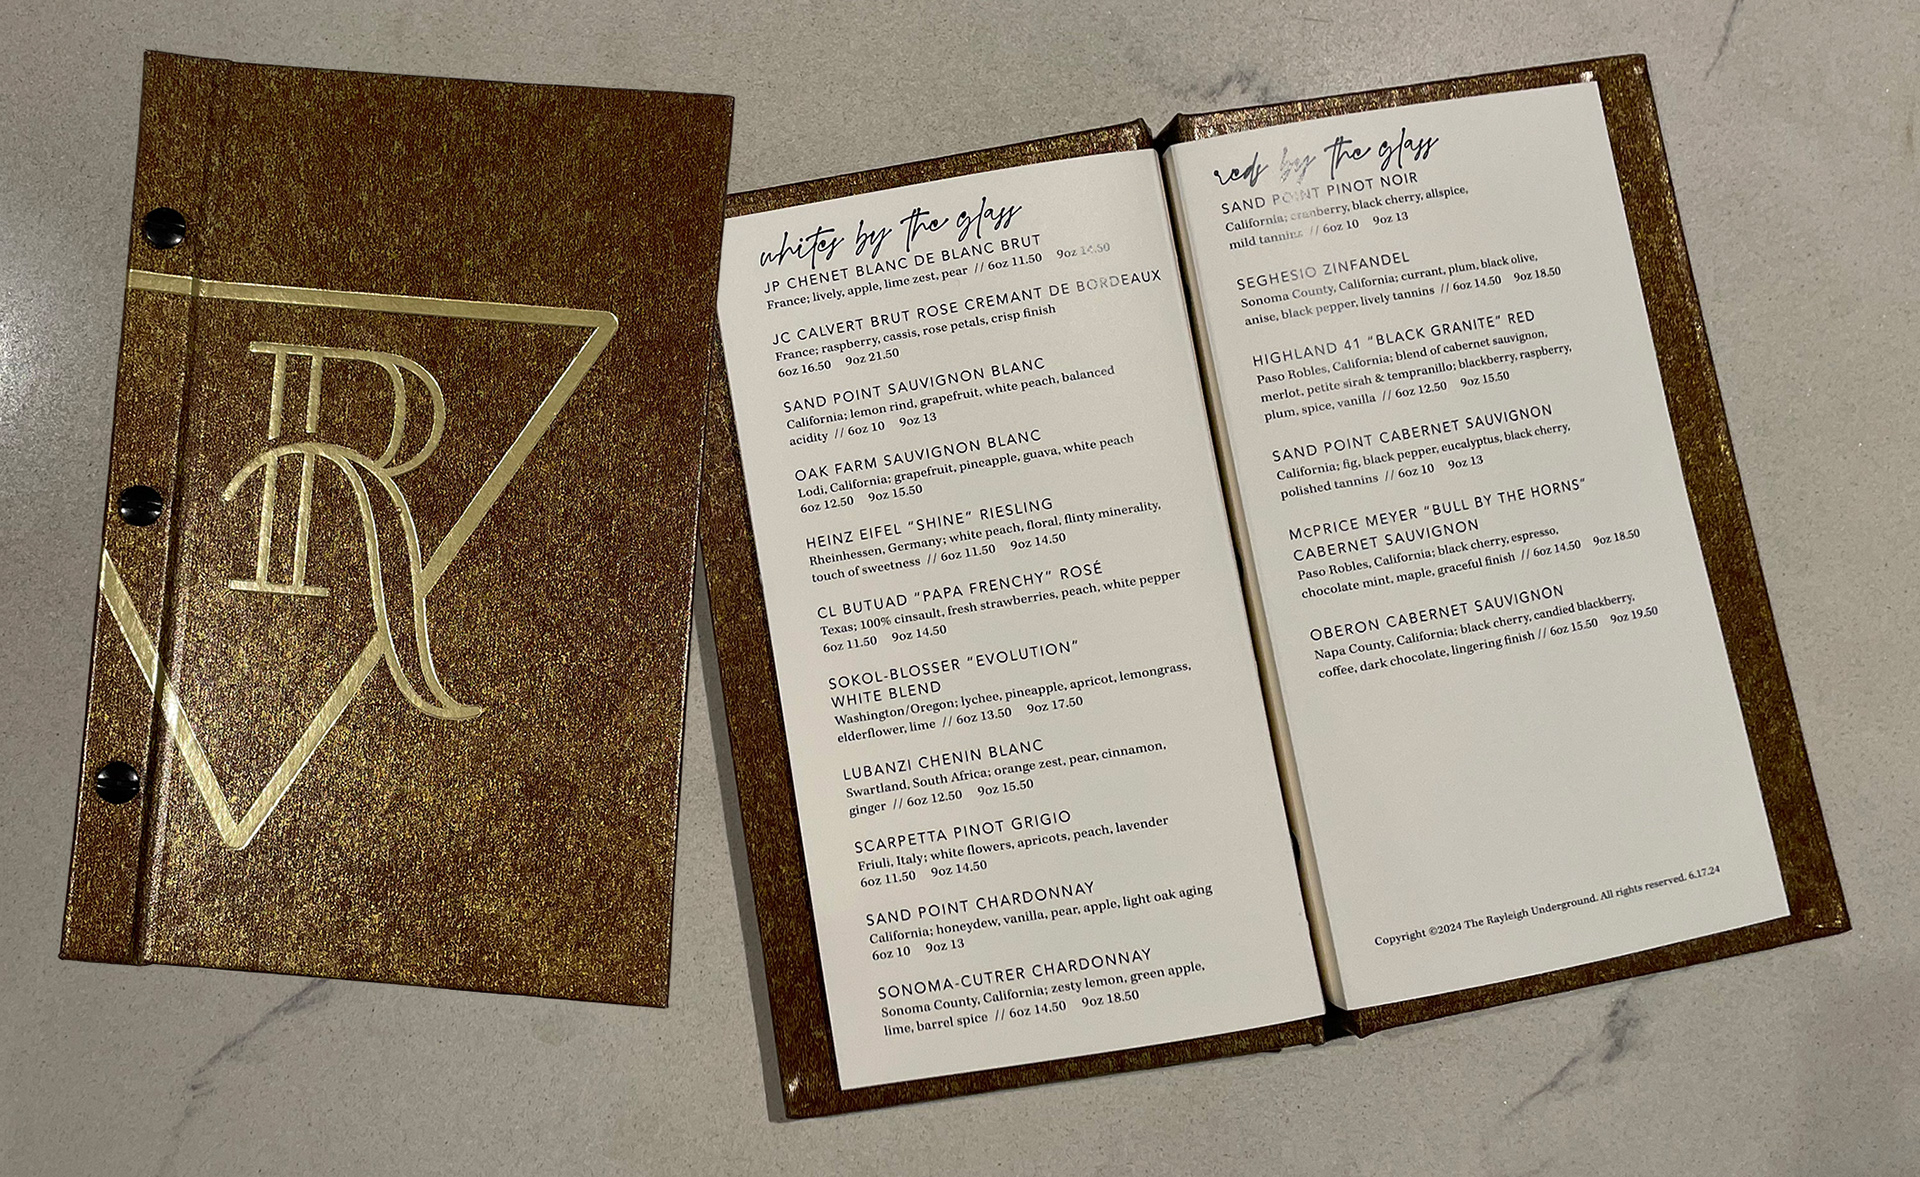 R
whites by the glass
JP CHENET BLANC DE BLANC BRUT
France; lively, apple, lime zest, pear // 6oz 11.50 9oz 14.50
JC CALVERT BRUT ROSE CREMANT DE BORDEAUX
France; raspberry, cassis, rose petals, crisp finish
6oz 16.50 9oz 21.50
SAND POINT SAUVIGNON BLANC
California; lemon rind, grapefruit, white peach, balanced
acidity // 6oz 10 9oz 13
OAK FARM SAUVIGNON BLANC
Lodi, California; grapefruit, pineapple, guava, white peach
6oz 12.50 9oz 15.50
HEINZ EIFEL “SHINE” RIESLING
Rheinhessen, Germany; white peach, floral, flinty minerality,
touch of sweetness // 6oz 11.50 9oz 14.50
CL BUTUAD “PAPA FRENCHY” ROSÉ
Texas; 100% cinsault, fresh strawberries, peach, white pepper
6oz 11.50 9oz 14.50
SOKOL-BLOSSER “EVOLUTION”
WHITE BLEND
Washington/Oregon; lychee, pineapple, apricot, lemongrass,
elderflower, lime // 6oz 13.50 9oz 17.50
LUBANZI CHENIN BLANC
Swartland, South Africa; orange zest, pear, cinnamon,
ginger // 6oz 12.50 9oz 15.50
SCARPETTA PINOT GRIGIO
Friuli, Italy; white flowers, apricots, peach, lavender
6oz 11.50 9oz 14.50
SAND POINT CHARDONNAY
California; honeydew, vanilla, pear, apple, light oak aging
6oz 10 9oz 13
SONOMA-CUTRER CHARDONNAY
Sonoma County, California; zesty lemon, green apple,
lime, barrel spice // 6oz 14.50 9oz 18.50
reds by the glass
SAND POINT PINOT NOIR
California; cranberry, black cherry, allspice,
mild tannins // 6oz 10 9oz 13
SEGHESIO ZINFANDEL
Sonoma County, California; currant, plum, black olive,
anise, black pepper, lively tannins // 6oz 14.50 9oz 18.50
HIGHLAND 41 “BLACK GRANITE” RED
Paso Robles, California; blend of cabernet sauvignon,
merlot, petite sirah & tempranillo; blackberry, raspberry,
plum, spice, vanilla // 6oz 12.50 9oz 15.50
SAND POINT CABERNET SAUVIGNON
California; fig, black pepper, eucalyptus, black cherry,
polished tannins // 6oz 10 9oz 13
McPRICE MEYER “BULL BY THE HORNS”
CABERNET SAUVIGNON
Paso Robles, California; black cherry, espresso,
chocolate mint, maple, graceful finish // 6oz 14.50 9oz 18.50
OBERON CABERNET SAUVIGNON
Napa County, California; black cherry, candied blackberry,
coffee, dark chocolate, lingering finish // 6oz 15.50 9oz 19.50
Copyright ©2024 The Rayleigh Underground. All rights reserved. 6.17.24